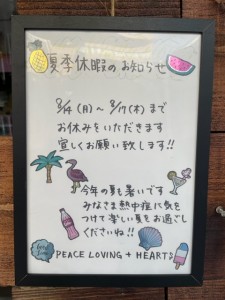 夏季休暇のお知らせ
8/14(月)～8/17(木)まで
お休みをいただきます
宜しくお願い致します!!
今年の夏も暑いです
みなさま熱中症に気を
つけて楽しい夏をお過ごし
くださいね!!
PEACE LOVING + HEARTS